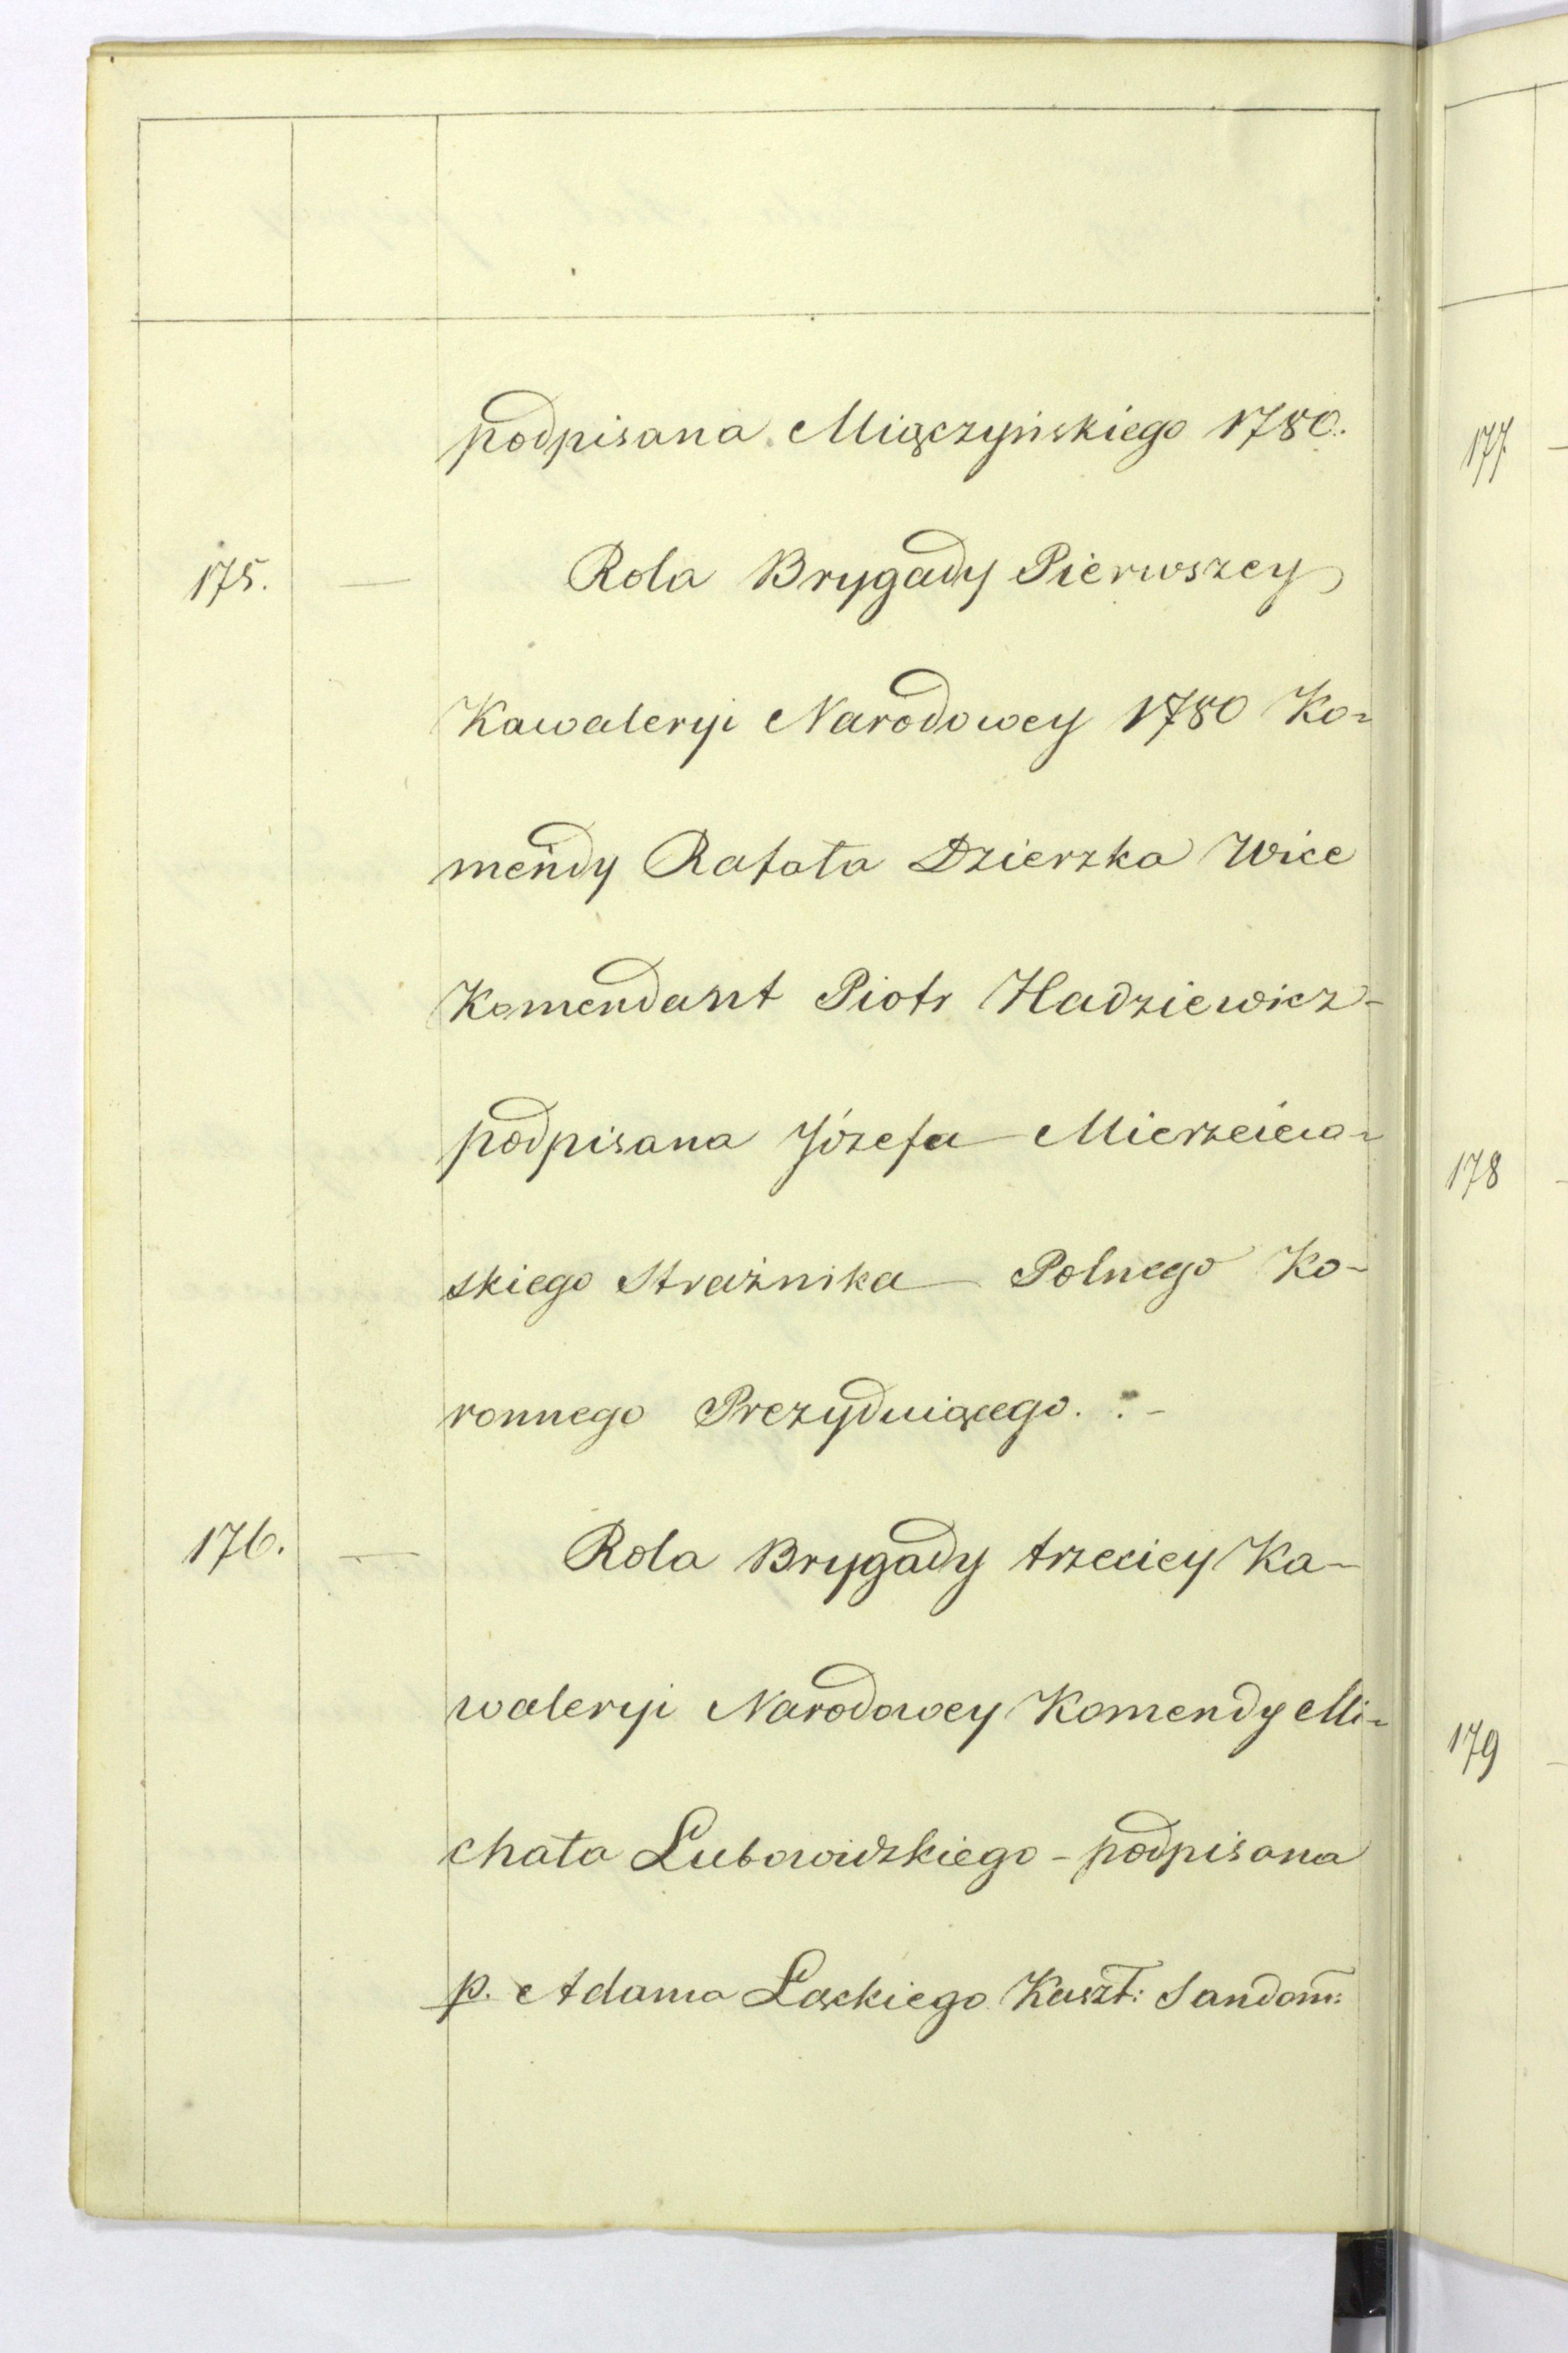 podpisana Miączyńskiego 1780.
175. — Rola Brygady Pierwszey
Kawaleryi Narodowey 1780 Ko-
mendy Rafała Dzierzka Wice
Komendant Piotr Hadziewicz -
podpisana Józefa Mierzeiew-
skiego Strażnika Polnego Ko-
ronnego Prezyduiącego. : -
176. — Rola Brygady trzeciey Ka-
waleryi Narodowey Komendy Mi-
chała Lubowidzkiego - podpisana
p. Adama Łąckiego Kaszt: Sandom:
177 —
178 -
179 -